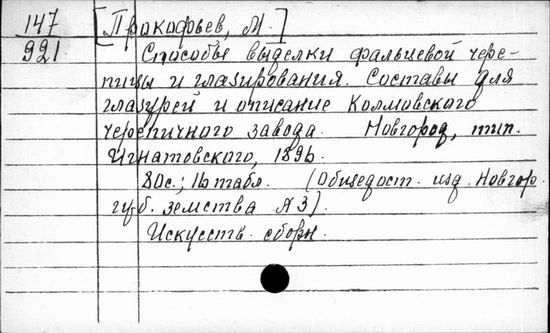 147 [Прокофьев, М.]
921. Способы выделки фальцевой чере-
пицы и глазирования. Составы для
глазурей и описание Колмовского
черепичного завода. Новгород, тип.
Игнатовского, 1896.
80с.; 16 табл. (Общедост. изд. Новгор.
губ. земства №3).
Искусств. сборн.